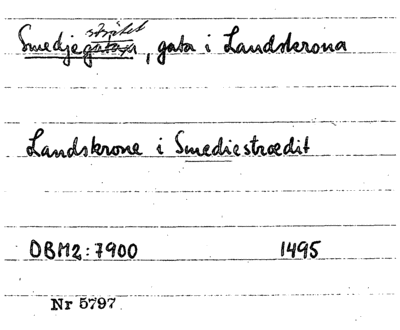 strätet
Smedjegatan, gata i Landskrona
Landskrone i Smediestrædit
DBM2:7900 1495
Nr 5797